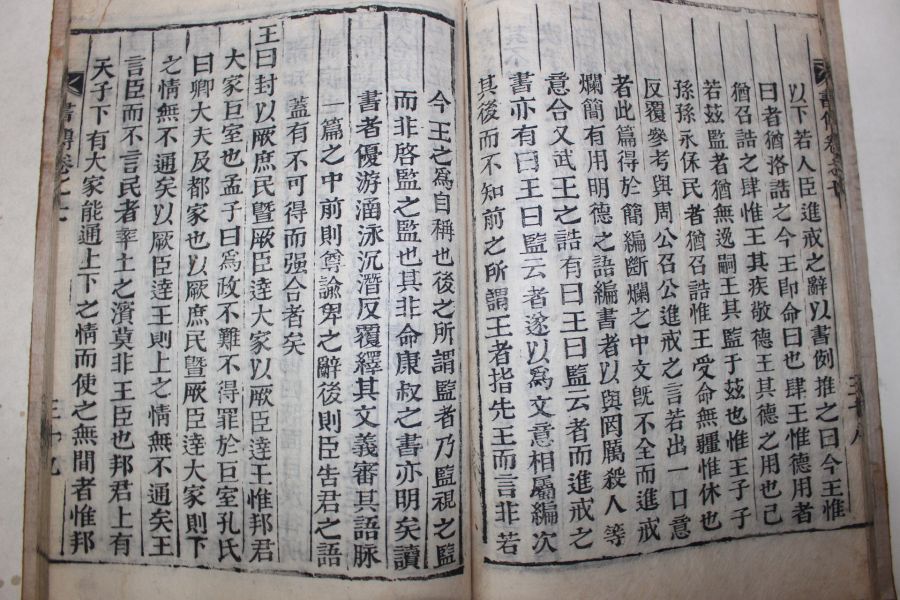 以下若人臣進戒之辭以書例推之曰今王惟
曰者猶洛誥之今王即命曰也肆王惟德用者
猶召誥之肆惟王其疾敬德王其德之用也已
若茲監者猶無逸嗣王其監于茲也惟王子子
孫孫永保民者猶召誥惟王受命無疆惟休也
反覆參考與周公召公進戒之言若出一口意
者此篇得於簡編斷爛之中文旣不全而進戒
爛簡有用明德之語編書者以與罔厲殺人等
意合又武王之誥有曰王曰監云者而進戒之
書亦有曰王曰監云者遂以爲文意相屬編次
其後而不知前之所謂王者指先王而言非若
今王之爲自稱也後之所謂監者乃監視之監
而非啓監之監也其非命康叔之書亦明矣讀
書者優游涵泳沉潛反覆繹其文義審其語脉
一篇之中前則尊諭卑之辭後則臣告君之語
蓋有不可得而强合者矣
王曰封以厥庶民曁厥臣達大家以厥臣達王惟邦君
大家巨室也孟子曰爲政不難不得罪於巨室孔氏
曰卿大夫及都家也以厥庶民曁厥臣達大家則下
之情無不通矣以厥臣達王則上之情無不通矣王
言臣而不言民者率土之濱莫非王臣也邦君上有
天子下有大家能通上下之情而使之無間者惟邦
書傳卷之十
三十九